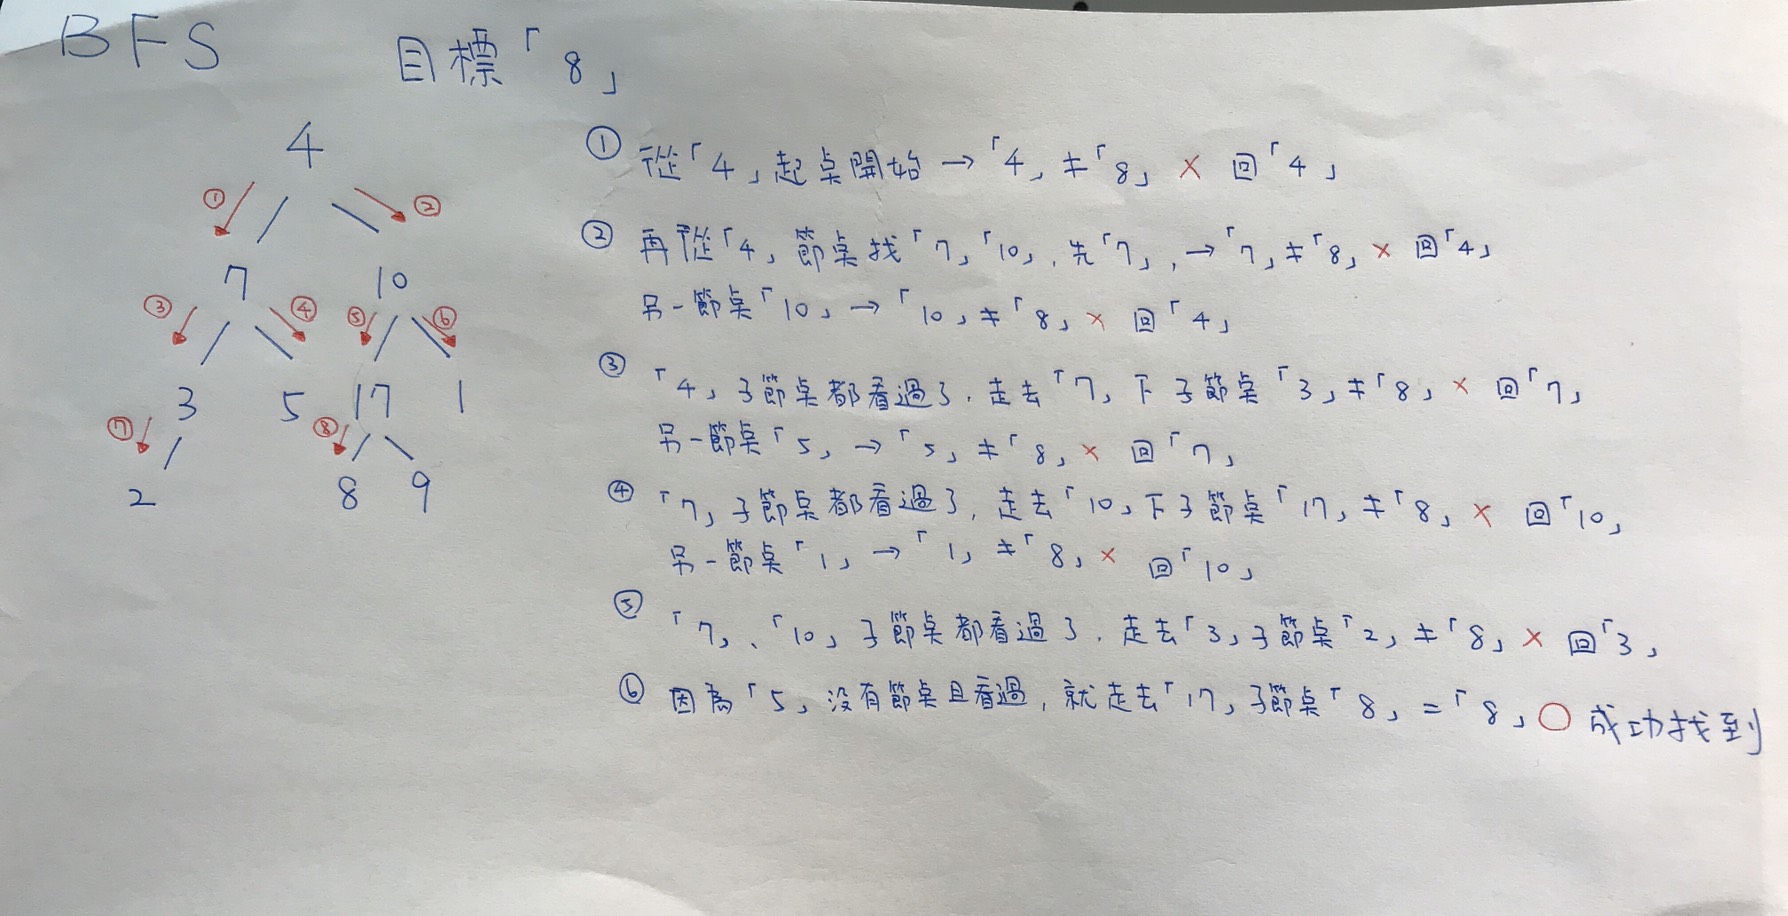 BFS
目標「8」
4
① ②
7 10
③ ④ ⑤ ⑥
3 5 17 1
⑦ ⑧
2 8 9
① 從「4」起桌開始→「4」≠「8」× 回「4」
② 再從「4」節桌找「7」「10」,先「7」,→「7」≠「8」× 回「4」
另一節桌「10」→「10」≠「8」× 回「4」
③ 「4」子節桌都看過了,走去「7」下子節桌「3」≠「8」× 回「7」
另一節桌「5」→「5」≠「8」× 回「7」
④ 「7」子節桌都看過了,走去「10」下子節桌「17」≠「8」× 回「10」
另一節桌「1」→「1」≠「8」× 回「10」
⑤ 「7」、「10」子節桌都看過了,走去「3」子節桌「2」≠「8」× 回「3」
⑥ 因為「5」沒有節桌且看過,就走去「17」子節桌「8」=「8」○ 成功找到